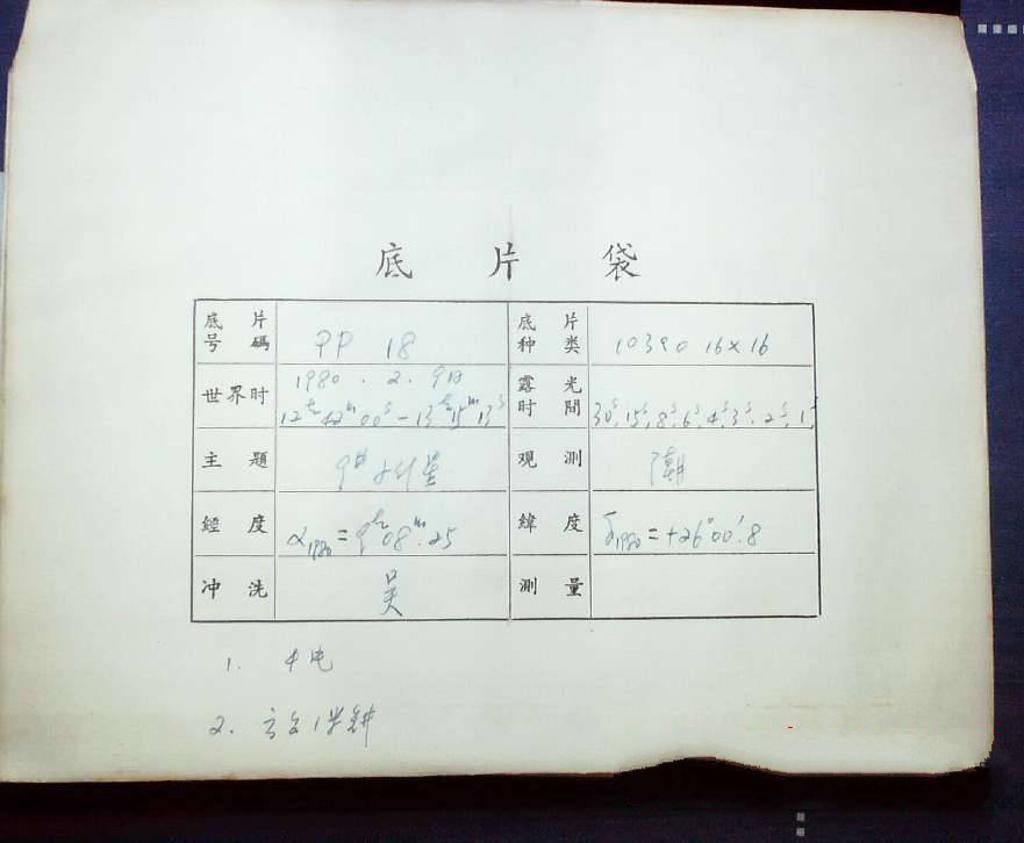 底 片 袋
底片号碼 PP 18 底片种类 10390 16×16
世界时 1980.2.9日 12ʰ42ᵐ00ˢ-13ʰ15ᵐ13ˢ 露光时間 30ˢ,15ˢ,8ˢ,6ˢ,4ˢ,3ˢ,2ˢ,1ˢ
主題 星 观測
經度 α₁₉₈₀=9ʰ08ᵐ.25 緯度 δ₁₉₈₀=+26°00′.8
冲洗 吴 測量
1.
2.